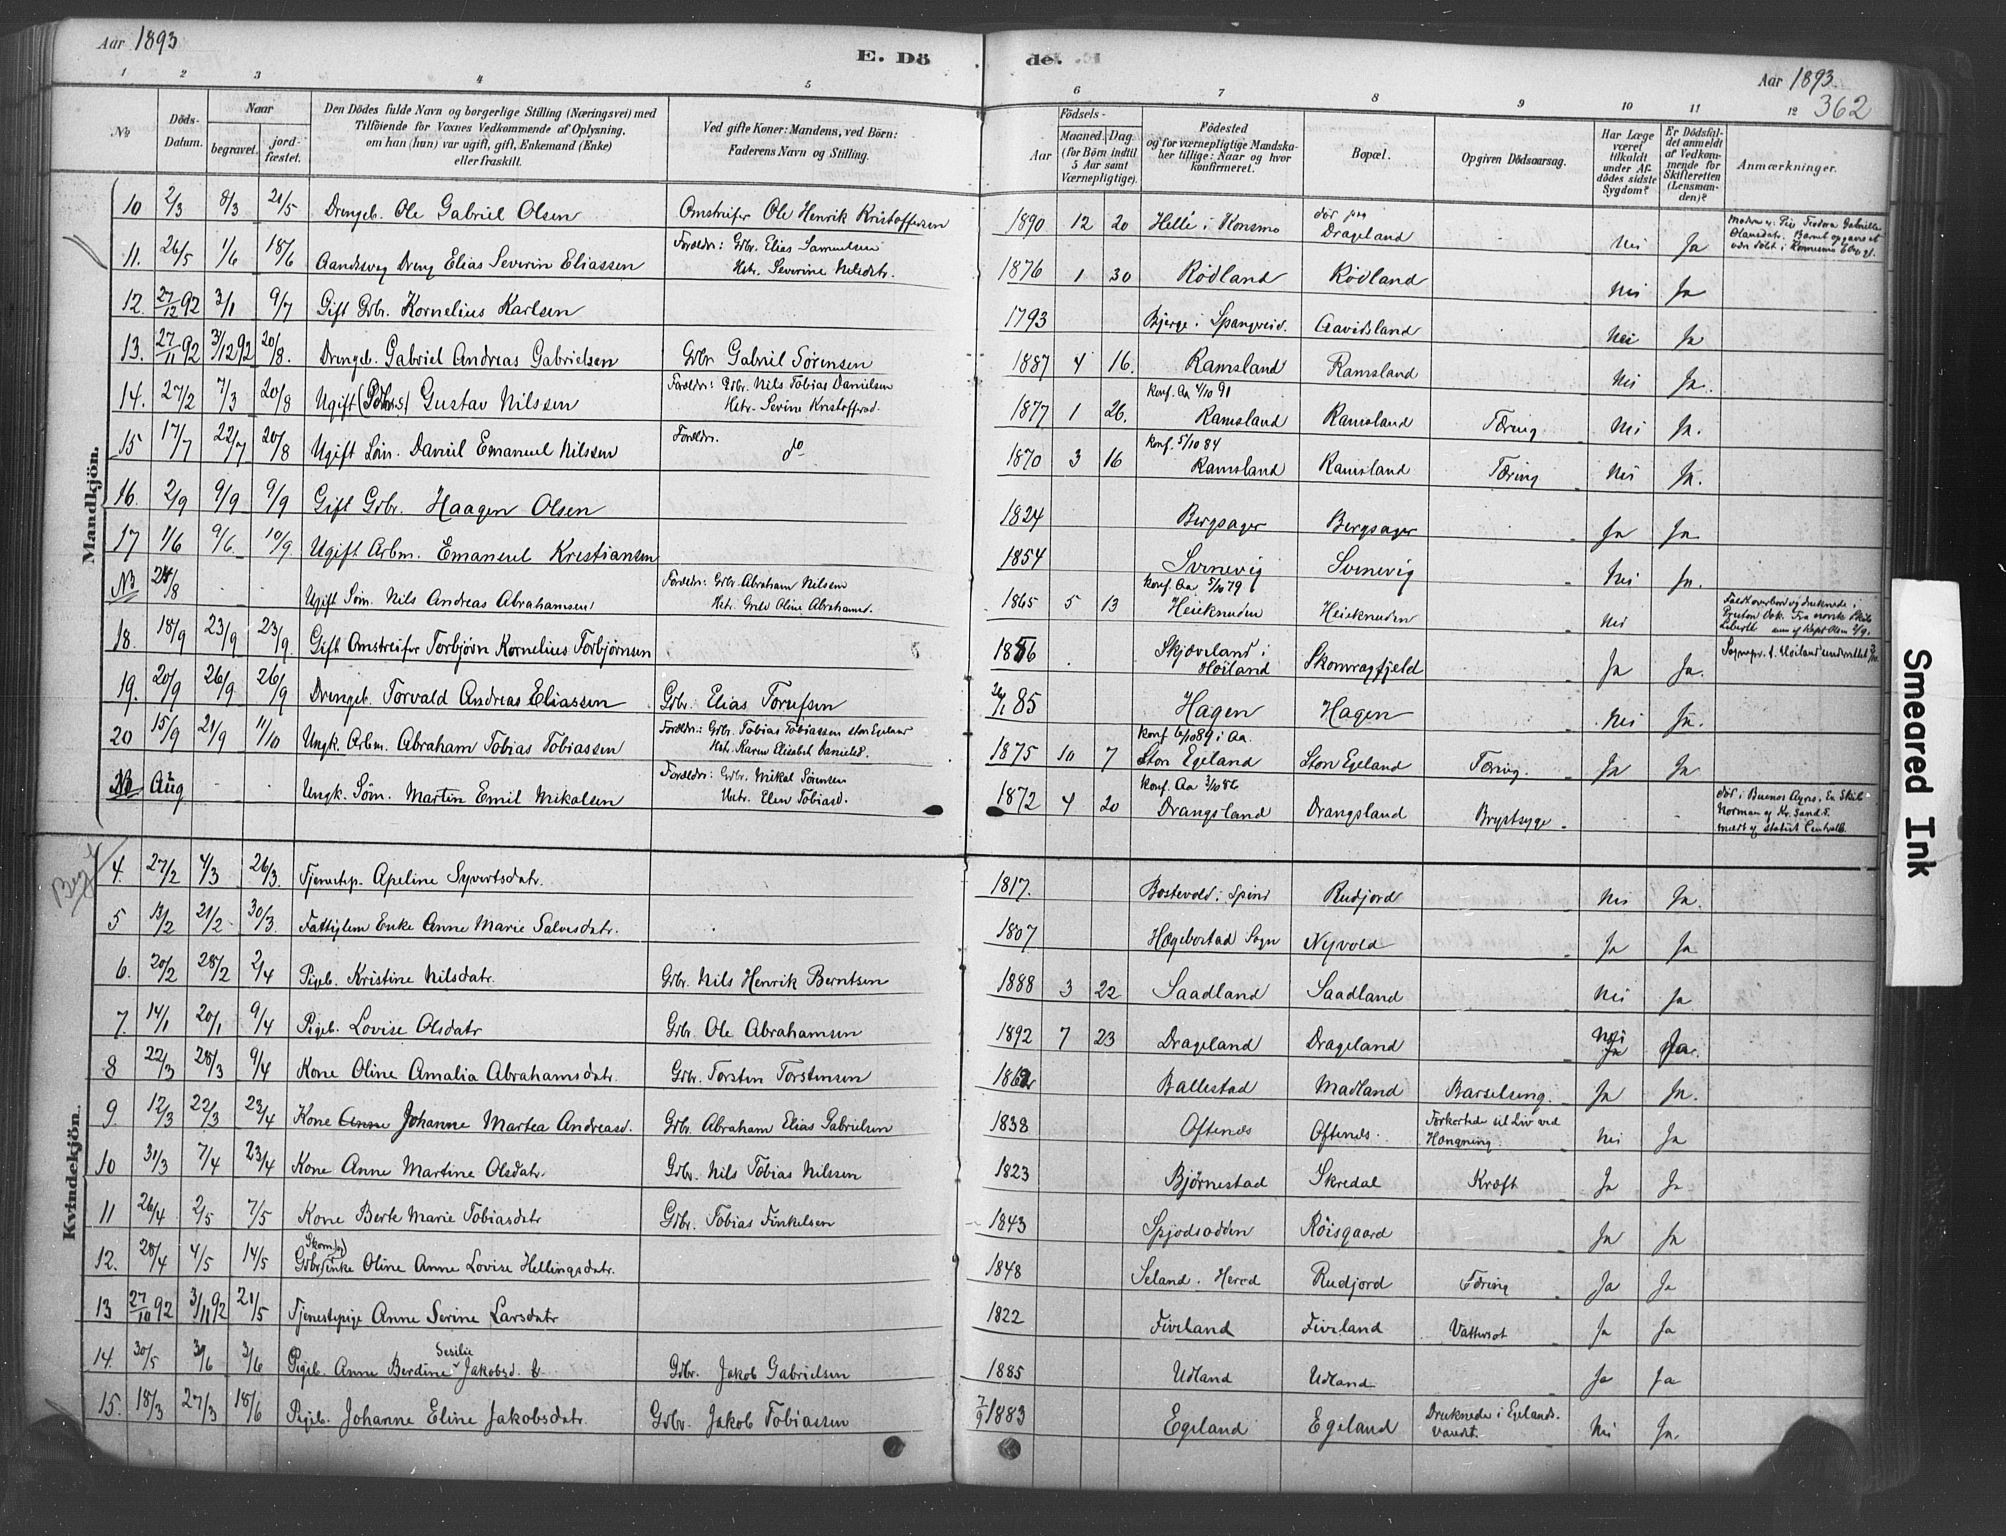 Aar 1893
E. Dö
de.
Aar 1893
362
1 2 3 4 5 6 7 8 9 10 11 12
No
Döds-Datum.
Naar
begravet.
jordfæstet.
Den Dödes fulde Navn og borgerlige Stilling (Næringsvei) med
Tilföiende for Voxnes Vedkommende af Oplysning,
om han (hun) var ugift, gift, Enkemand (Enke)
eller fraskilt.
Ved gifte Koner: Mandens, ved Börn:
Faderens Navn og Stilling.
Födsels-
Aar
Maaned. Dag.
(for Börn indtil
5 Aar samt
Værnepligtige).
Födested
og for værnepligtige Mandskaber tillige: Naar og hvor
konfirmeret.
Bopæl.
Opgiven Dödsaarsag.
Har Læge
været
tilkaldt
under Afdödes sidste
Sygdom?
Er Dödsfaldet anmeldt
af Vedkommende for
Skifteretten
(Lensmanden)?
Anmærkninger.
Mandkjön.
10 2/3 8/3 21/5 Drengeb. Ole Gabriel Olsen Omstreifer Ole Henrik Kristoffersen 1890 12 20 Helle i Konsmo Drageland Nei Ja
11. 26/5 1/6 18/6 Aandssvag Dreng Elias Severin Eliassen Foreldr: Gdbr. Elias Samuelsen
Hstr. Severine Nilsdatr. 1876 1 30 Rödland Rödland Nei Ja
12. 27/12 92 3/1 9/7 Gift Gdbr. Kornelius Karlsen 1793 Bjerge i Spangreid. Gavidsland Nei Ja
13. 27/11 92 3/12 92 20/8. Drengeb. Gabriel Andreas Gabrielsen Gdbr Gabriel Sörensen 1887 4 16. Ramsland Ramsland Nei Ja.
14. 27/2 7/3 20/8 Ugift Gustav Nilssen Foreldr: Gdbr. Nils Tobias Danielsen
Hstr. Sevine Kristoffersd. 1877 1 26. konf. Aa 4/10 91
Ramsland Ramsland Tæring Nei Ja.
15 17/7 22/7 20/8 Ugift Söm. Daniel Emanuel Nilssen Foreldr. do 1870 3 16 konf. 5/10 84
Ramsland Ramsland Tæring Nei Ja.
16. 2/9 9/9 9/9 Gift Gdbr. Haagen Olsen 1824 Bergsager Bergsager Ja Ja.
17 1/6 9/6. 10/9 Ugift Arbm. Emanuel Kristiansen 1854 Svinevig Svinevig Nei Ja.
NB 24/8 - - Ugift Söm. Nils Andreas Abrahamsen Foreldr: Gdbr. Abraham Nilsen
Hstr. Oline Abrahamsd. 1865 5 13 konf. Aa 5/10 79
Heieknuden Heieknuden Nei Faldt overbord og druknede i
Preston Dok.
18. 18/9 23/9 23/9. Gift Omstreifer Torbjörn Kornelius Torbjörnsen 1856 Skjæveland i
Höiland Skomragfjeld Ja Ja.
19. 20/9 26/9 26/9 Drengeb. Torvald Andreas Eliassen Gdbr. Elias 85 Hagen Hagen Nei Ja.
20 15/9 21/9 11/10 Ungk. Arbm. Abraham Tobias Tobiassen Foreldr: Gdbr. Tobias Tobiassen Stor Egeland
Hstr. Karen Elisabet Danielsd. 1875 10 7 konf 6/10 89 i Aa.
Stor Egeland Stor Egeland Tæring. Ja Ja
NB Aug - - Ungk. Söm. Martin Emil Mikalsen Foreldr: Gdbr. Mikal Sörensen
Hstr. Elen Tobiasd. 1872 4 20 konf. Aa 3/10 86
Drangsland Drangsland Brystsyge - - död i Buenos Ayres. En Skib
Norman af Kr. Sand S.
Kvindekjön.
4. 27/2 4/3 26/3 Tjenestep. Apeline Syvertsdatr. 1817. Bostevold i Spind Rudjord Nei Ja.
5 13/2 21/2 30/3 Fattiglem Enke Anne Marie Salvesdatr. 1807 Hægebostad Sogn Nyvold Ja Ja
6. 20/2 28/2 2/4 Pigeb. Kristine Nilsdatr. Gdbr. Nils Henrik Berntsen 1888 3 22 Saadland Saadland Nei Ja
7. 14/1 20/1 9/4 Pigeb. Lovise Olsdatr Gdbr. Ole Abrahamsen 1892 7 23 Drageland Drageland Nei Ja.
8 22/3 28/3 9/4 Kone Oline Amalia Abrahamsdatr. Gdbr. Torsten Torstensen Ballestad Madland Barselseng. Ja Ja.
9. 12/3 22/3 23/4 Kone Anne Johanne Martea Andreasd. Gdbr. Abraham Elias Gabrielsen 1838 Oftenæs Oftenæs. Forkortede sit Liv ved
Hængning. Nei Ja
10 31/3 7/4 23/4 Kone Anne Martine Olsdatr. Gdbr. Nils Tobias Nilssen 1823 Björnestad Skredal Kræft Ja Ja
11 26/4 2/5 7/5 Kone Berte Marie Tobiasdatr Gdbr. Tobias Finkelsen 1843 Spjodsodden Röisgaard Ja Ja
12. 28/4 4/5 14/5 Enke Oline Anne Lovise Hellingsdatr. 1848 Seland. Herod Rudjord Tæring Ja Ja
13 27/10 92 3/11 92 21/5 Tjenestepige Anne Serine Larsdatr 1822 Fiveland Fiveland Vattersot Ja Ja
14. 30/5 3/6 3/6 Pigeb. Anne Berdine Sesilie Jakobsd. Gdbr. Jakob Gabrielsen 1885 Udland Udland Ja Ja
15. 18/3 27/3 18/6 Pigeb. Johanne Eline Jakobsdatr. Gdbr. Jakob Tobiassen 7/9 1883 Egeland Egeland Druknede i Egelands-
vandet. Nei Ja.
Smeared Ink